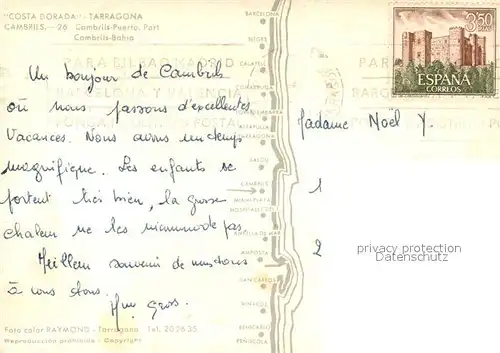 "COSTA DORADA" - TARRAGONA
CAMBRILS.— 26 Cambrils-Puerto, Port
Cambrils-Bahia
Un bonjour de Cambrils
où nous passons d'excellentes
Vacances. Nous avons un temps
magnifique. Les enfants se
portent très bien, la grosse
chaleur ne les incommode pas
Meilleur souvenir de nous tous
à vous tous.
Mme Gros.
Foto color RAYMOND - Tarragona Tel. 20 26 35
Reproducción prohibida - Copyright
BARCELONA
SITGES
CALAFELL
TARRAGONA
SALOU
CAMBRILS
MIAMI PLAYA
AMETLLA DE MAR
AMPOSTA
SAN CARLOS
VINAROZ
BENICARLO
PEÑISCOLA
PARA BILBAO MADRID
BARCELONA Y VALENCIA
POSTAL
3,50
PTAS
ESPAÑA
CORREOS
Madame Noël Y.
1
2
privacy protection
Datenschutz